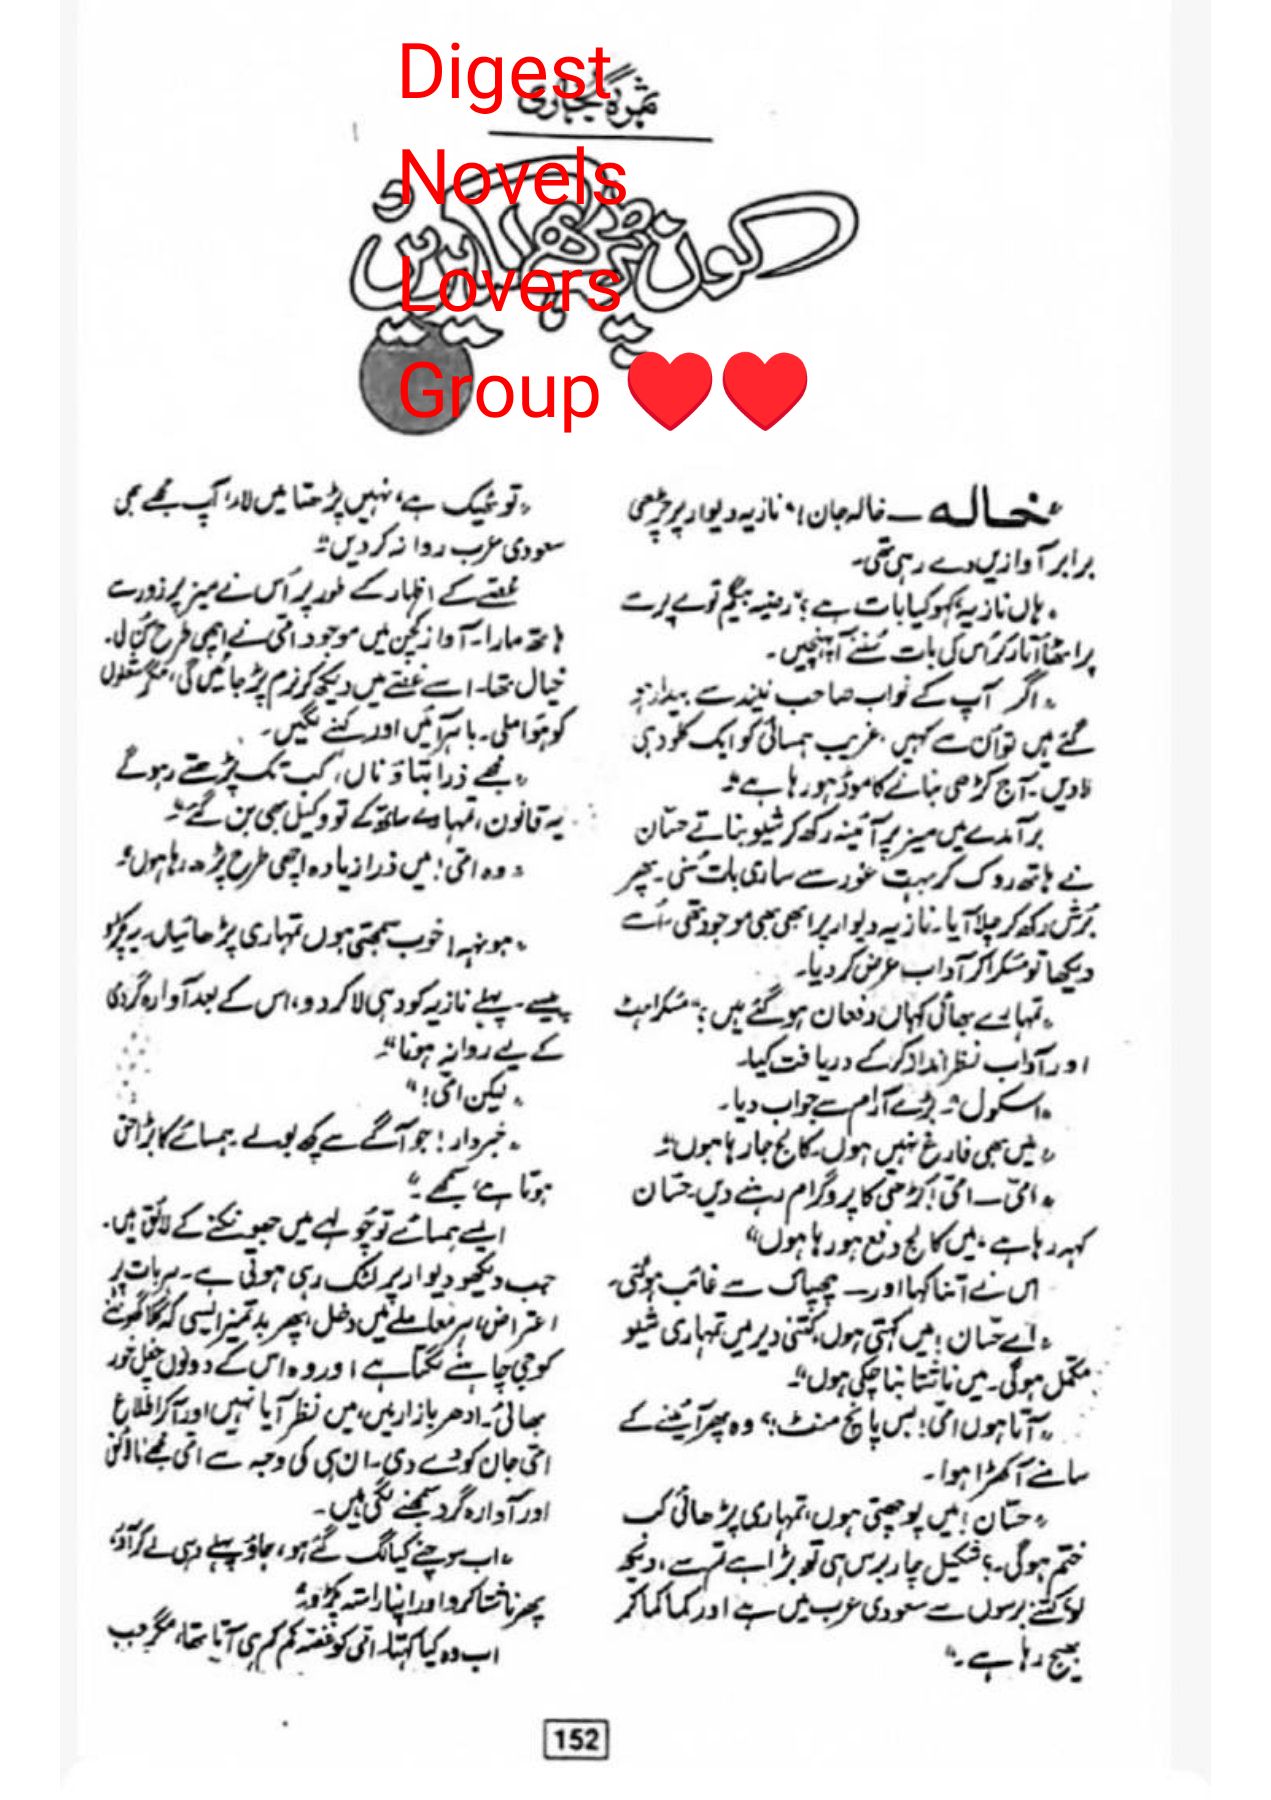 Digest
Novels
Lovers
Group
ثمرہ بخاری
کون پڑھا
”خالہ — خالہ جان!“ نازیہ دیوار پر چڑھی
برابر آوازیں دے رہی تھی۔
”ہاں نازیہ! کہو کیا بات ہے؟“ رضیہ بیگم توے پر سے
پراٹھا اتار کر اس کی بات سننے آ پہنچیں۔
”اگر آپ کے نواب صاحب نیند سے بیدار ہو
گئے ہیں تو اُن سے کہیں، غریب ہمسائی کو ایک کلو دہی
لادیں۔ آج کڑھی بنانے کا موڈ ہو رہا ہے۔“
برآمدے میں میز پر آئینہ رکھ کر شیو بناتے حسّان
نے ہاتھ روک کر بہت غور سے ساری بات سُنی۔ پھر
برش رکھ کر چلا آیا۔ نازیہ دیوار پر ابھی بھی موجود تھی، اُسے
دیکھا تو مسکرا کر آداب عرض کر دیا۔
”تمہارے بھائی کہاں دفعان ہو گئے ہیں؟“ مسکراہٹ
اور آداب نظر انداز کر کے دریافت کیا۔
”اسکول“۔ بڑے آرام سے جواب دیا۔
”میں بھی فارغ نہیں ہوں۔ کالج جا رہا ہوں۔“
”امّی — امّی! کڑھی کا پروگرام رہنے دیں۔ حسّان
کہہ رہا ہے، میں کالج دفع ہو رہا ہوں“
اس نے اتنا کہا اور — چھپاک سے غائب ہو گئی۔
”اے حسّان! میں کہتی ہوں، کتنی دیر میں تمہاری شیو
مکمّل ہوگی۔ میں ناشتا بنا چکی ہوں“۔
”آتا ہوں امّی! بس پانچ منٹ؟“ وہ پھر آئینے کے
سامنے آ کھڑا ہوا۔
”حسّان! میں پوچھتی ہوں، تمہاری پڑھائی کب
ختم ہوگی۔؟ شکیل چار برس ہی تو بڑا ہے تم سے، دیکھ
لو کتنے برسوں سے سعودی عرب میں ہے اور کما کما کر
بھیج رہا ہے۔“
”تو ٹھیک ہے، نہیں پڑھتا میں لاء، آپ مجھے بھی
سعودی عرب روانہ کر دیں۔“
غصّے کے اظہار کے طور پر اُس نے میز پر زور سے
ہاتھ مارا۔ آواز کچن میں موجود امّی نے اچھی طرح سُن لی۔
خیال تھا۔ اسے غصّے میں دیکھ کر نرم پڑ جائیں گی، مگر شعلوں
کو ہوا ملی۔ باہر آئیں اور کہنے لگیں۔
”مجھے ذرا بتاؤ ناں، کب تک پڑھتے رہو گے
یہ قانون، تمہارے ساتھ کے تو وکیل بھی بن گئے۔“
”وہ امّی! میں ذرا زیادہ اچھی طرح پڑھ رہا ہوں۔“
”ہونہہ! خوب سمجھتی ہوں تمہاری پڑھائیاں۔ یہ پکڑو
پیسے۔ پہلے نازیہ کو دہی لا کر دو، اس کے بعد آوارہ گردی
کے لیے روانہ ہونا“۔
”لیکن امّی!“
”خبردار! جو آگے سے کچھ بولے۔ ہمسائے کا بڑا حق
ہوتا ہے، سمجھے۔“
ایسے ہمسائے تو چولہے میں جھونکنے کے لائق ہیں۔
جب دیکھو دیوار پر لٹک رہی ہوتی ہے۔ ہر بات پر
اعتراض، ہر معاملے میں دخل، پھر بدتمیز ایسی کہ گلا گھونٹنے
کو جی چاہنے لگتا ہے اور وہ اس کے دونوں چغل خور
بھائی۔ ادھر بازار میں، میں نظر آیا نہیں اور آ کر اطلاع
امّی جان کو دے دی۔ ان ہی کی وجہ سے امّی مجھے نالائق
اور آوارہ گرد سمجھنے لگی ہیں۔
”اب سوچنے کیا لگ گئے ہو، جاؤ پہلے دہی لے کر آؤ،
پھر ناشتا کرو اور اپنا راستہ پکڑو۔“
اب وہ کیا کہتا۔ امّی کو غصّہ کم کم ہی آتا تھا، مگر جب
152